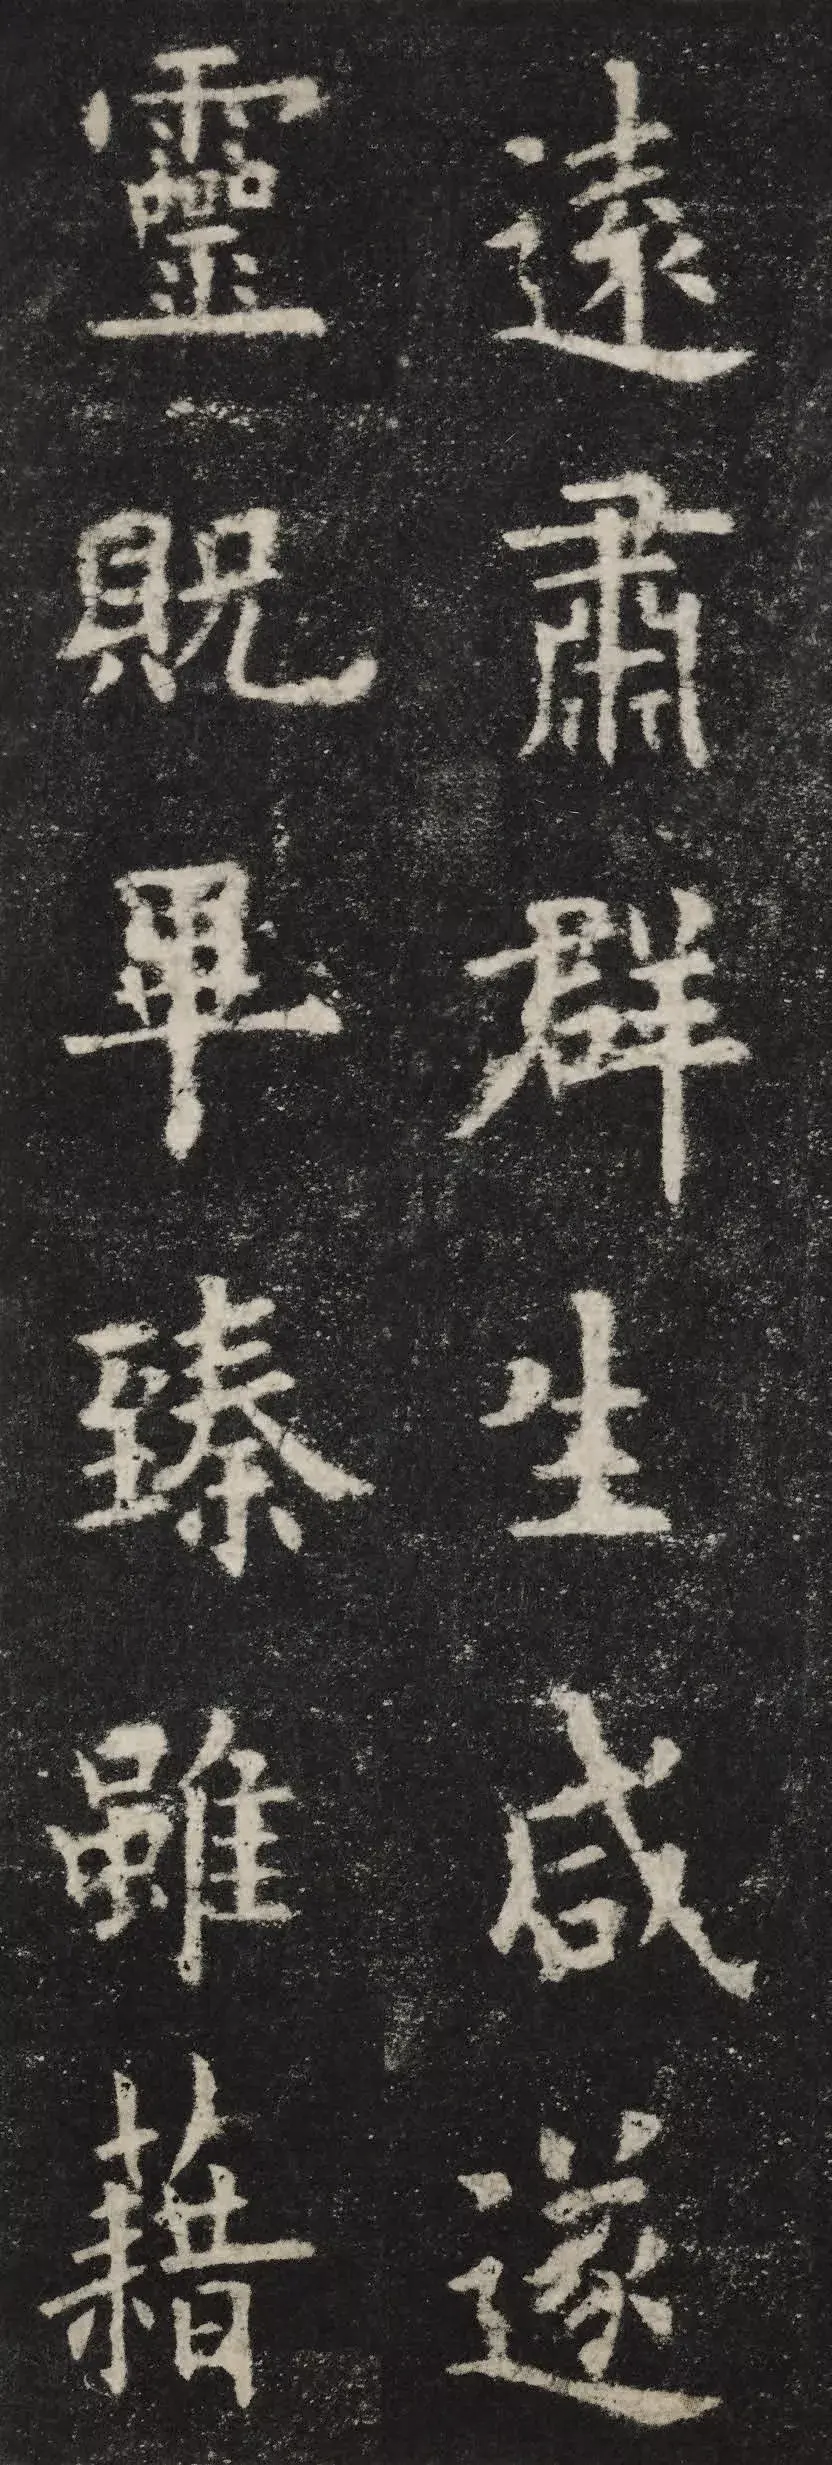 遠肅群生咸遂
靈貺畢臻雖藉